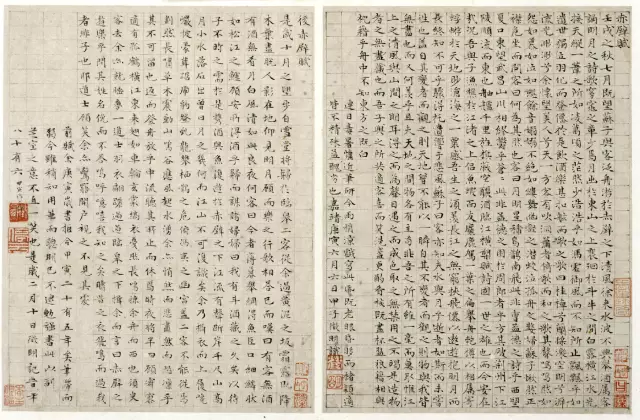 赤壁賦
壬戌之秋七月既望蘇子與客泛舟遊於赤壁之下清風徐來水波不興舉酒屬客
誦明月之詩歌窈窕之章少焉月出於東山之上裴回於斗牛之間白露橫江水光
接天縱一葦之所如凌萬頃之茫然浩浩乎如馮虛御風而不知所止飄飄乎如
遺世獨立羽化而登仙於是飲酒樂甚扣舷而歌之歌曰桂棹兮蘭槳擊空明兮
泝流光渺渺兮余懷望美人兮天一方客有吹洞簫者倚歌而和之其聲嗚嗚然如
怨如慕如泣如訴餘音嫋嫋不絕如縷舞幽壑之潛蛟泣孤舟之嫠婦蘇子愀然正
襟危坐而問客曰何為其然也客曰月明星稀烏鵲南飛此非曹孟德之詩乎西望
夏口東望武昌山川相繆鬱乎蒼蒼此非孟德之困於周郎者乎方其破荊州下江
陵順流而東也舳艫千里旌旗蔽空釃酒臨江橫槊賦詩固一世之雄也而今安在
哉況吾與子漁樵於江渚之上侶魚蝦而友麋鹿駕一葉之扁舟舉匏樽以相屬寄
蜉蝣於天地渺滄海之一粟哀吾生之須臾羨長江之無窮挾飛仙以遨遊抱明月而
長終知不可乎驟得托遺響於悲風蘇子曰客亦知夫水與月乎逝者如斯而未嘗
自其變者而觀之則天地曾不能以一瞬自其不變者而觀之則物與我皆
無盡也而又何羨乎且夫天地之間物各有主苟非吾之所有雖一毫而莫取惟江
上之清風與山間之明月耳得之而為聲目遇之而成色取之無禁用之不竭是造物
者之無盡藏也而吾與子之所共食客喜而笑洗盞更酌肴核既盡杯盤狼藉相與
枕藉乎舟中不知東方之既白
連日毒暑今雨稍涼戲寫此賦既老眼昏眵而楮穎適
皆不精殊益醜劣也嘉靖庚寅六月六日甲子徵明識
後赤壁賦
是歲十月之望步自雪堂將歸於臨皋二客從余過黃泥之坂霜露既降
木葉盡脫人影在地仰見明月顧而樂之行歌相答已而嘆曰有客無酒
有酒無肴月白風清如此良夜何客曰今者薄暮舉網得魚巨口細鱗狀
如松江之鱸顧安所得酒乎歸而謀諸婦婦曰我有斗酒藏之久矣以待
子不時之需於是攜酒與魚復遊於赤壁之下江流有聲斷岸千尺山高
月小水落石出曾日月之幾何而江山不可復識矣余乃攝衣而上履巉
巖披蒙茸踞虎豹登虬龍攀棲鶻之危巢俯馮夷之幽宮蓋二客不能從焉
劃然長嘯草木震動山鳴谷應風起水涌余亦悄然而悲肅然而恐凜乎
其不可留也返而登舟放乎中流聽其所止而休焉時夜將半四顧寂寥
適有孤鶴橫江東來翅如車輪玄裳縞衣戛然長鳴掠余舟而西也須臾
客去余亦就睡夢一道士羽衣翩躚過臨皋之下揖余而言曰赤壁之
遊樂乎問其姓名俛而不答嗚呼噫嘻我知之矣疇昔之夜飛鳴而過我
者非子也耶道士顧笑余亦驚寤開戶視之不見其處
前賦余庚寅歲書抵今甲寅二十有五年矣筆滯而
弱今雖稍知用筆而聰明已不逮勉強書此以副
芝室之意不直一笑也是歲二月十日徵明記時年
八十有六